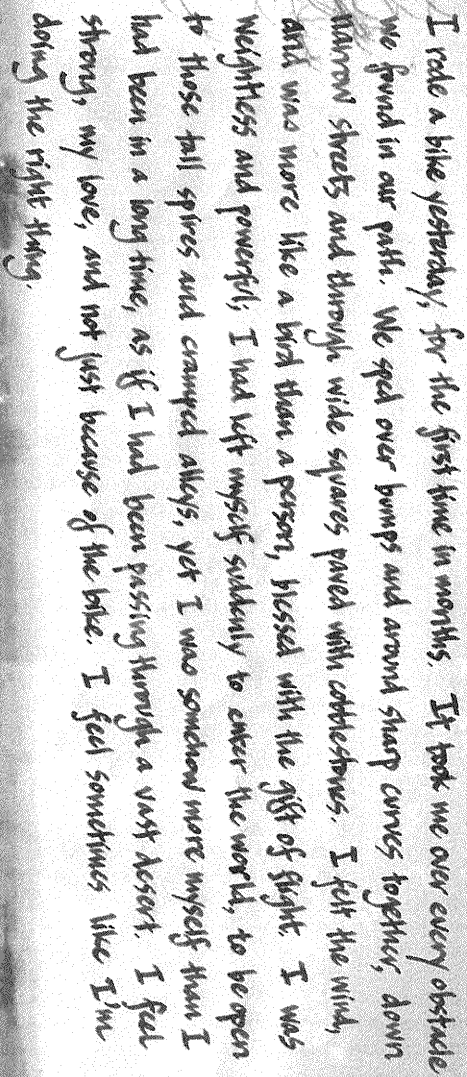 I rode a bike yesterday, for the first time in months. It took me over every obstacle
we found in our path. We sped over bumps and around sharp curves together, down
narrow streets and through wide squares paved with cobblestones. I felt the wind,
and was more like a bird than a person, blessed with the gift of flight. I was
weightless and powerful; I had left myself suddenly to enter the world, to be open
to those tall spires and cramped alleys, yet I was somehow more myself than I
had been in a long time, as if I had been passing through a vast desert. I feel
strong, my love, and not just because of the bike. I feel sometimes like I'm
doing the right thing.